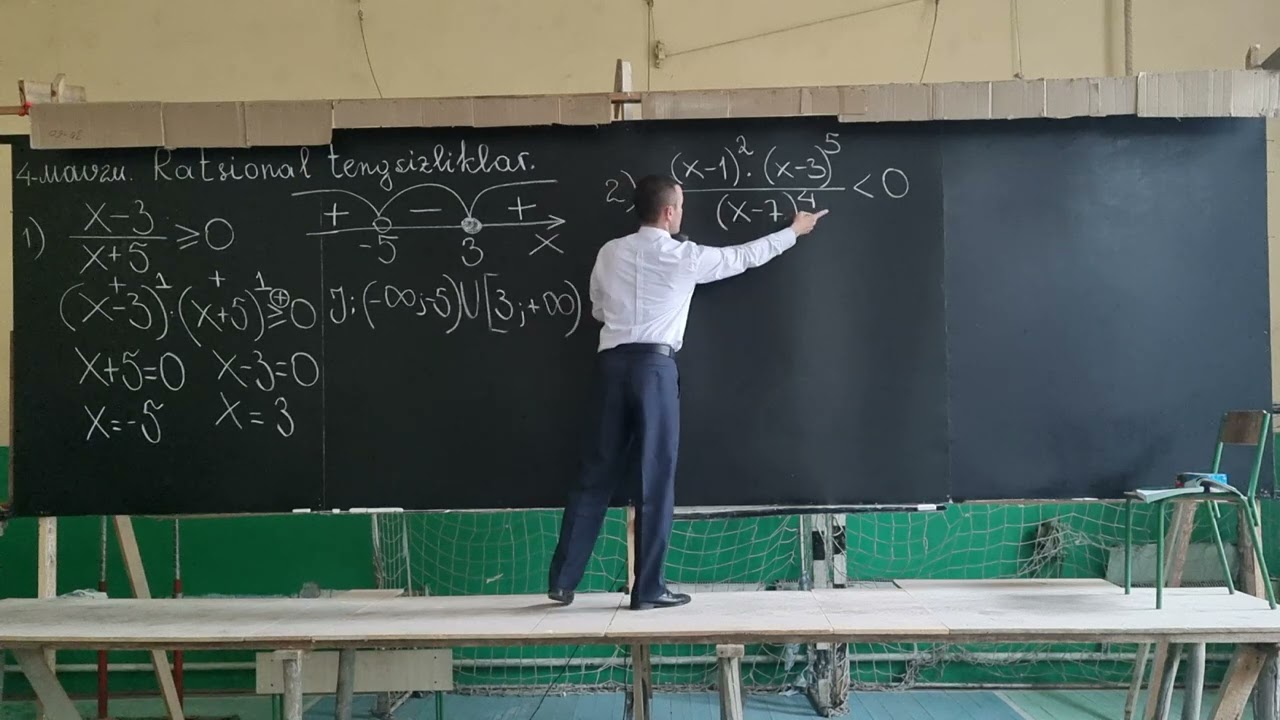 4-mavzu. Ratsional tengsizliklar.
1) (x-3)/(x+5) ≥ 0
+ - +
-5 3 x
(x-3)¹·(x+5)¹ ≥ 0
+ + ⊕
J: (-∞;-5)∪[3;+∞)
x+5=0 x-3=0
x=-5 x=3
2) (x-1)²·(x-3)⁵/(x-7)⁴ < 0